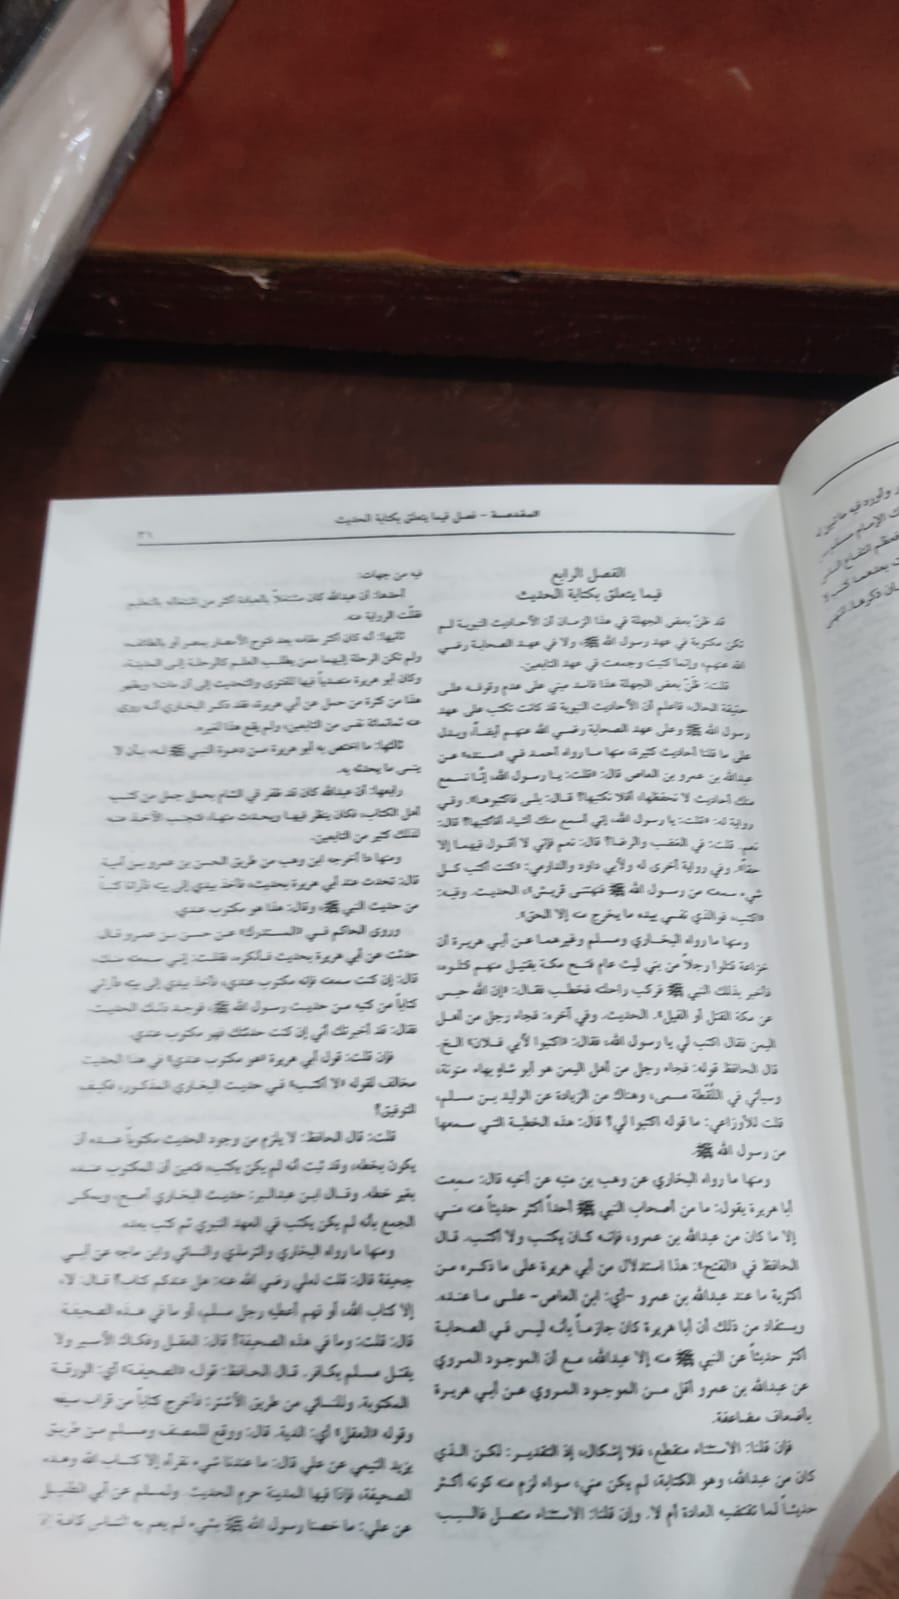 المقدمة - فصل فيما يتعلق بكتابة الحديث
٣١
الفصل الرابع
فيما يتعلق بكتابة الحديث
قد ظنّ بعض الجهلة في هذا الزمان أن الأحاديث النبوية لم
تكن مكتوبة في عهد رسول الله ﷺ، ولا في عهد الصحابة رضي
الله عنهم، وإنما كتبت وجمعت في عهد التابعين.
قلت: ظَنّ بعض الجهلة هذا فاسد مبني على عدم وقوفه على
حقيقة الحال، فاعلم أن الأحاديث النبوية قد كانت تكتب على عهد
رسول الله ﷺ وعلى عهد الصحابة رضي الله عنهم أيضاً، ويدل
على ما قلنا أحاديث كثيرة، منها ما رواه أحمد في «مسنده» عن
عبدالله بن عمرو بن العاص قال: «قلت: يا رسول الله، إنّا نسمع
منك أحاديث لا نحفظها، أفلا نكتبها؟ قال: بلى فاكتبوها». وفي
رواية له: «قلت: يا رسول الله، إني أسمع منك أشياء أفأكتبها؟ قال:
نعم. قلت: في الغضب والرضا؟ قال: نعم فإني لا أقول فيهما إلا
حقاً». وفي رواية أخرى له ولأبي داود والدارمي: «كنت أكتب كل
شيء سمعته من رسول الله ﷺ فنهتني قريش»، الحديث. وفيه:
«اكتب، فوالذي نفسي بيده ما يخرج منه إلا الحق».
ومنها ما رواه البخاري ومسلم وغيرهما عن أبي هريرة أن
خزاعة قتلوا رجلاً من بني ليث عام فتح مكة بقتيل منهم قتلوه،
فأخبر بذلك النبي ﷺ فركب راحلته فخطب فقال: «إن الله حبس
عن مكة القتل أو الفيل». الحديث. وفي آخره: فجاء رجل من أهل
اليمن فقال اكتب لي يا رسول الله، فقال: «اكتبوا لأبي فلان» الخ.
قال الحافظ قوله: فجاء رجل من أهل اليمن هو أبو شاهٍ بهاء منونة،
وسيأتي في اللُّقَطة مسمى، وهناك من الزيادة عن الوليد بن مسلم،
قلت للأوزاعي: ما قوله اكتبوا لي؟ قال: هذه الخطبة التي سمعها
من رسول الله ﷺ.
ومنها ما رواه البخاري عن وهب بن منبه عن أخيه قال: سمعت
أبا هريرة يقول: ما من أصحاب النبي ﷺ أحداً أكثر حديثاً عنه مني
إلا ما كان من عبدالله بن عمرو، فإنه كان يكتب ولا أكتب. قال
الحافظ في «الفتح»: هذا استدلال من أبي هريرة على ما ذكره من
أكثرية ما عند عبدالله بن عمرو -أي: ابن العاص- على ما عنده.
ويستفاد من ذلك أن أبا هريرة كان جازماً بأنه ليس في الصحابة
أكثر حديثاً عن النبي ﷺ منه إلا عبدالله، مع أن الموجود المروي
عن عبدالله بن عمرو أقل من الموجود المروي عن أبي هريرة
بأضعاف مضاعفة.
فإن قلنا: الاستثناء منقطع، فلا إشكال، إذ التقدير: لكن الذي
كان من عبدالله، وهو الكتابة، لم يكن مني، سواء لزم منه كونه أكثر
حديثاً لما تقتضيه العادة أم لا. وإن قلنا: الاستثناء متصل فالسبب
فيه من جهات:
أحدها: أن عبدالله كان مشتغلاً بالعبادة أكثر من اشتغاله بالتعليم
فقلّت الرواية عنه.
ثانيها: أنه كان أكثر مقامه بعد فتوح الأمصار بمصر أو بالطائف،
ولم تكن الرحلة إليهما ممن يطلب العلم كالرحلة إلى المدينة،
وكان أبو هريرة متصدياً فيها للفتوى والتحديث إلى أن مات، ويظهر
هذا من كثرة من حمل عن أبي هريرة، فقد ذكر البخاري أنه روى
عنه ثمانمائة نفس من التابعين، ولم يقع هذا لغيره.
ثالثها: ما اختص به أبو هريرة من دعوة النبي ﷺ له، بأن لا
ينسى ما يحدثه به.
رابعها: أن عبدالله كان قد ظفر في الشام بحمل جمل من كتب
أهل الكتاب، فكان ينظر فيها ويحدث منها، فتجنب الأخذ عنه
لذلك كثير من التابعين.
ومنها ما أخرجه ابن وهب من طريق الحسن بن عمرو بن أمية
قال: تحدث عند أبي هريرة بحديث، فأخذ بيدي إلى بيته فأرانا كتباً
من حديث النبي ﷺ، وقال: هذا هو مكتوب عندي.
وروى الحاكم في «المستدرك» عن حسن بن عمرو قال:
حدثت عن أبي هريرة بحديث فأنكره، فقلت: إني سمعته منك،
قال: إن كنت سمعته فإنه مكتوب عندي، فأخذ بيدي إلى بيته فأراني
كتاباً من كتبه من حديث رسول الله ﷺ، فوجد ذلك الحديث،
فقال: قد أخبرتك أني إن كنت حدثتك فهو مكتوب عندي.
فإن قلت: قول أبي هريرة «هو مكتوب عندي» في هذا الحديث
مخالف لقوله «لا أكتب» في حديث البخاري المذكور، فكيف
التوفيق؟
قلت: قال الحافظ: لا يلزم من وجود الحديث مكتوباً عنده أن
يكون بخطه، وقد ثبت أنه لم يكن يكتب، فتعين أن المكتوب عنده
بغير خطه. وقال ابن عبدالبر: حديث البخاري أصح، ويمكن
الجمع بأنه لم يكن يكتب في العهد النبوي ثم كتب بعده.
ومنها ما رواه البخاري والترمذي والنسائي وابن ماجه عن أبي
جحيفة قال: قلت لعلي رضي الله عنه: هل عندكم كتاب؟ قال: لا،
إلا كتاب الله، أو فهم أعطيه رجل مسلم، أو ما في هذه الصحيفة
قال: قلت: وما في هذه الصحيفة؟ قال: العقل وفكاك الأسير ولا
يقتل مسلم بكافر. قال الحافظ: قوله «الصحيفة» أي: الورقة
المكتوبة. وللنسائي من طريق الأشتر: فأخرج كتاباً من قراب سيفه
وقوله «العقل» أي: الدية. قال: ووقع للمصنف ومسلم من طريق
يزيد التيمي عن علي قال: ما عندنا شيء نقرأه إلا كتاب الله وهذه
الصحيفة، فإذا فيها المدينة حرم الحديث. ولمسلم عن أبي الطفيل
عن علي: ما خصنا رسول الله ﷺ بشيء لم يعم به الناس كافة إلا